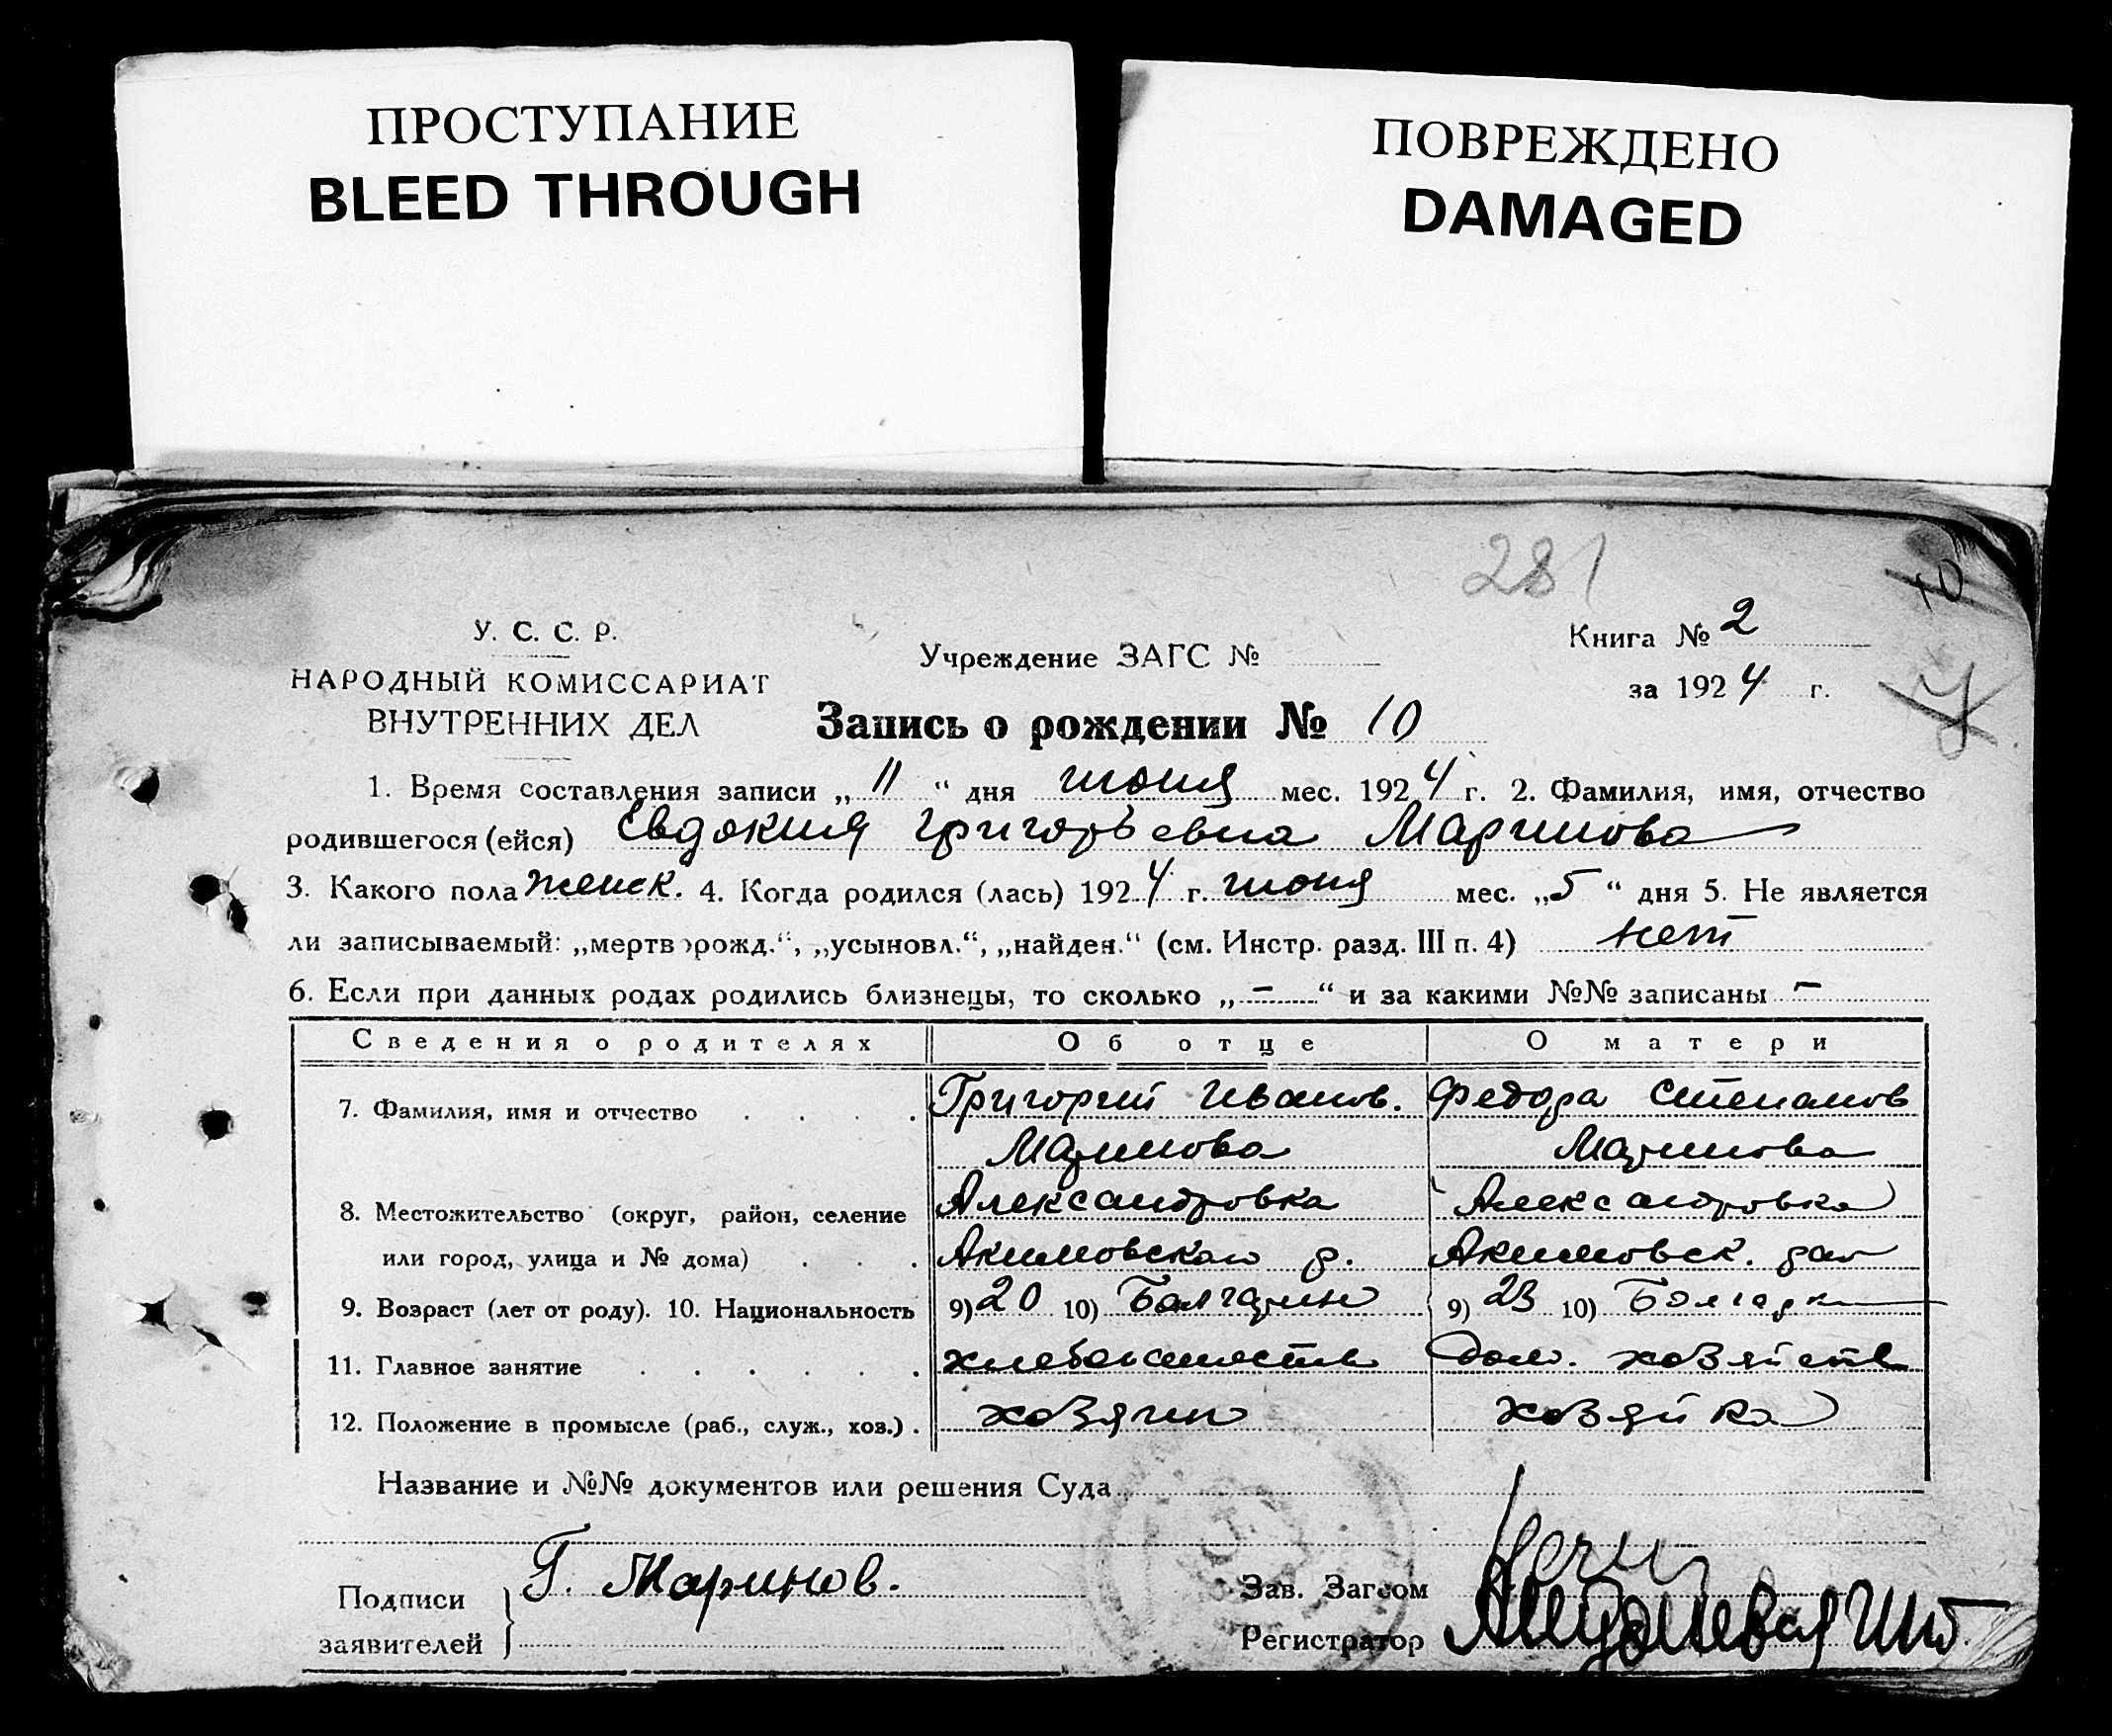 ПРОСТУПАНИЕ
BLEED THROUGH
ПОВРЕЖДЕНО
DAMAGED
281
10
У. С. С. Р.
НАРОДНЫЙ КОМИССАРИАТ
ВНУТРЕННИХ ДЕЛ
Учреждение ЗАГС №
Книга № 2
за 1924 г.
Запись о рождении № 10
1. Время составления записи „11“ дня июня мес. 1924 г. 2. Фамилия, имя, отчество
родившегося (ейся) Евдокия Григорьевна Маринова
3. Какого пола женск. 4. Когда родился (лась) 1924 г. июня мес. „5“ дня 5. Не является
ли записываемый: „мертворожд.“, „усыновл.“, „найден.“ (см. Инстр. разд. III п. 4) нет
6. Если при данных родах родились близнецы, то сколько „—“ и за какими №№ записаны —
Сведения о родителях Об отце О матери
7. Фамилия, имя и отчество . . . . Григорий Иванов. Федора Степанов
Маринова Маринова
8. Местожительство (округ, район, селение Александровка Александровка
или город, улица и № дома) . . . Акимовского р. Акимовск. рай
9. Возраст (лет от роду). 10. Национальность 9) 20 10) Болгарин 9) 23 10) Болгарка
11. Главное занятие . . . . . . хлебопашество Дом. хозяйств
12. Положение в промысле (раб., служ., хоз.) . хозяин хозяйка
Название и №№ документов или решения Суда
Подписи
заявителей
Г. Маринов.
Зав. Загсом
Регистратор